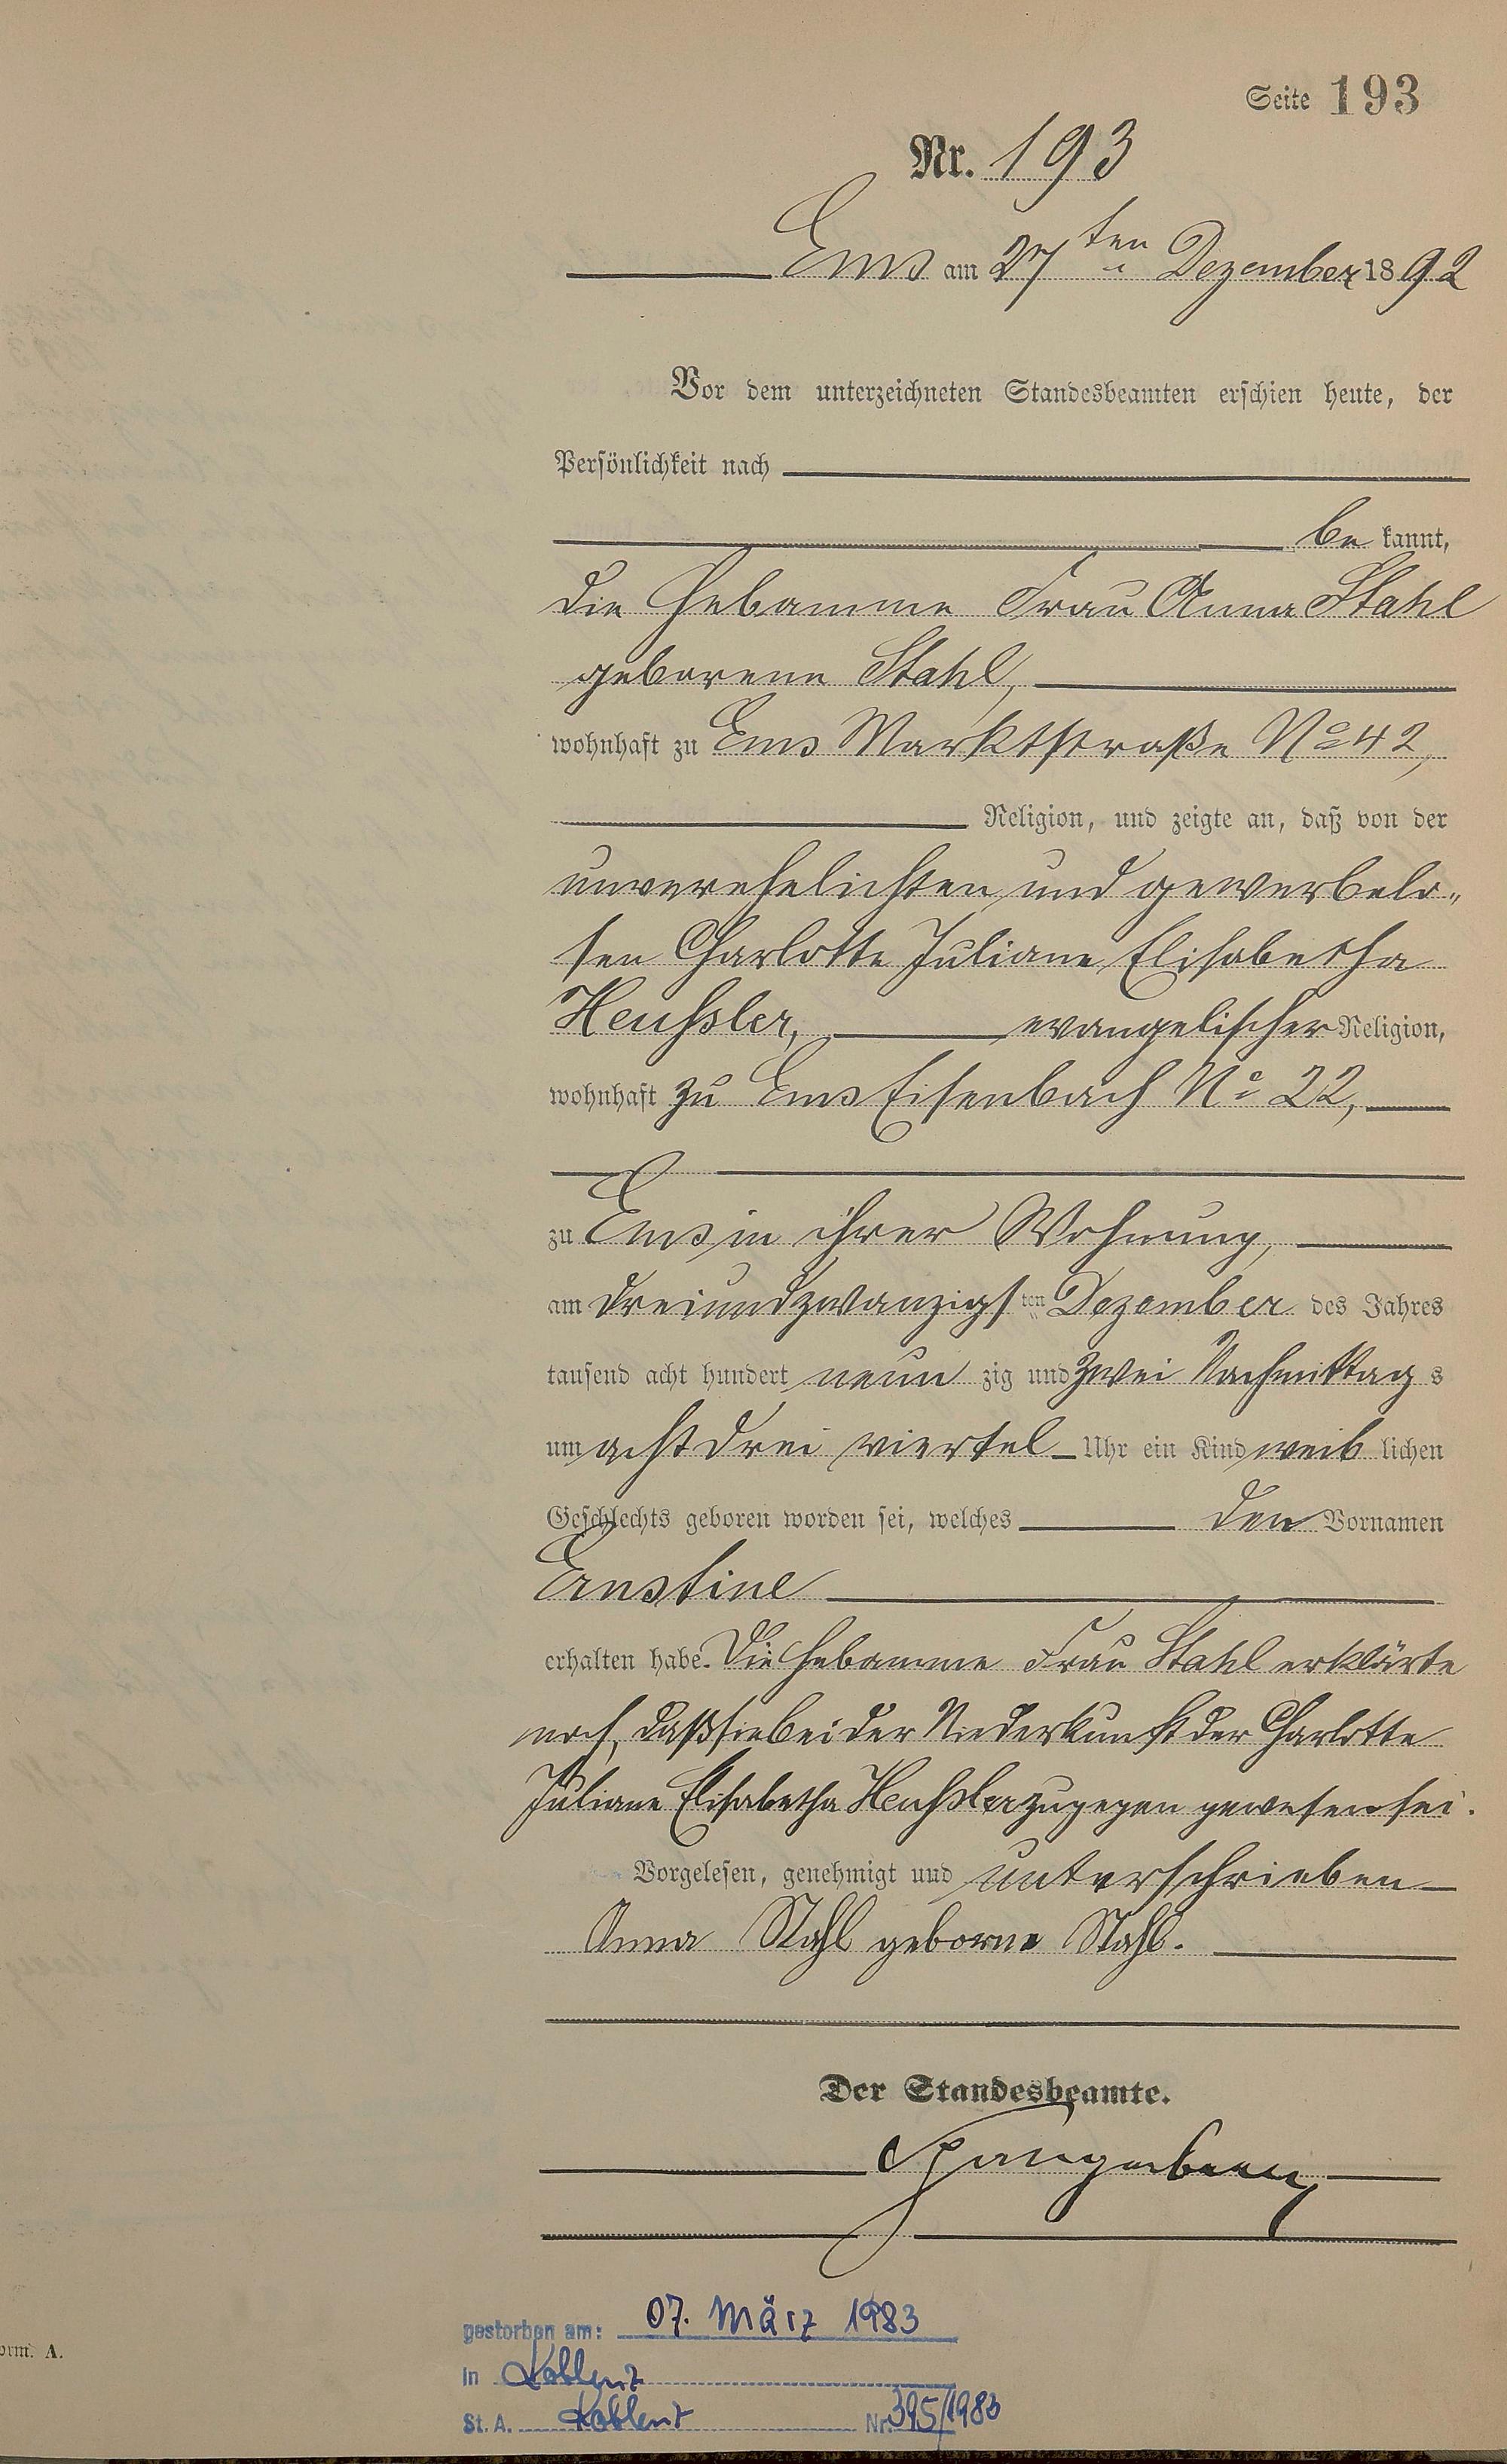 Seite 193
Nr. 193
Ems am 27ten Dezember 1892
Vor dem unterzeichneten Standesbeamten erschien heute, der
Persönlichkeit nach
be kannt,
die Hebamme Frau Anna Stahl
geborene Stahl,
wohnhaft zu Ems Marktstraße No 42,
Religion, und zeigte an, daß von der
unverehelichten und gewerbelo-
sen Charlotte Juliane Elisabetha
Heußler, evangelischer Religion,
wohnhaft zu Ems Eisenbach No 22,
zu Ems in ihrer Wohnung,
am dreiundzwanzigsten Dezember des Jahres
tausend acht hundert neun zig und zwei Nachmittag s
um acht drei viertel Uhr ein Kind weib lichen
Geschlechts geboren worden sei, welches den Vornamen
Ernstine
erhalten habe. Die Hebamme Frau Stahl erklärte
noch, daß sie bei der Niederkunft der Charlotte
Juliane Elisabetha Heußler zugegen gewesen sei.
Vorgelesen, genehmigt und unterschrieben
Anna Stahl geborne Stahl.
Der Standesbeamte.
gestorben am: 07. März 1983
in Koblenz
St. A. Koblenz Nr. 395/1983
orm. A.